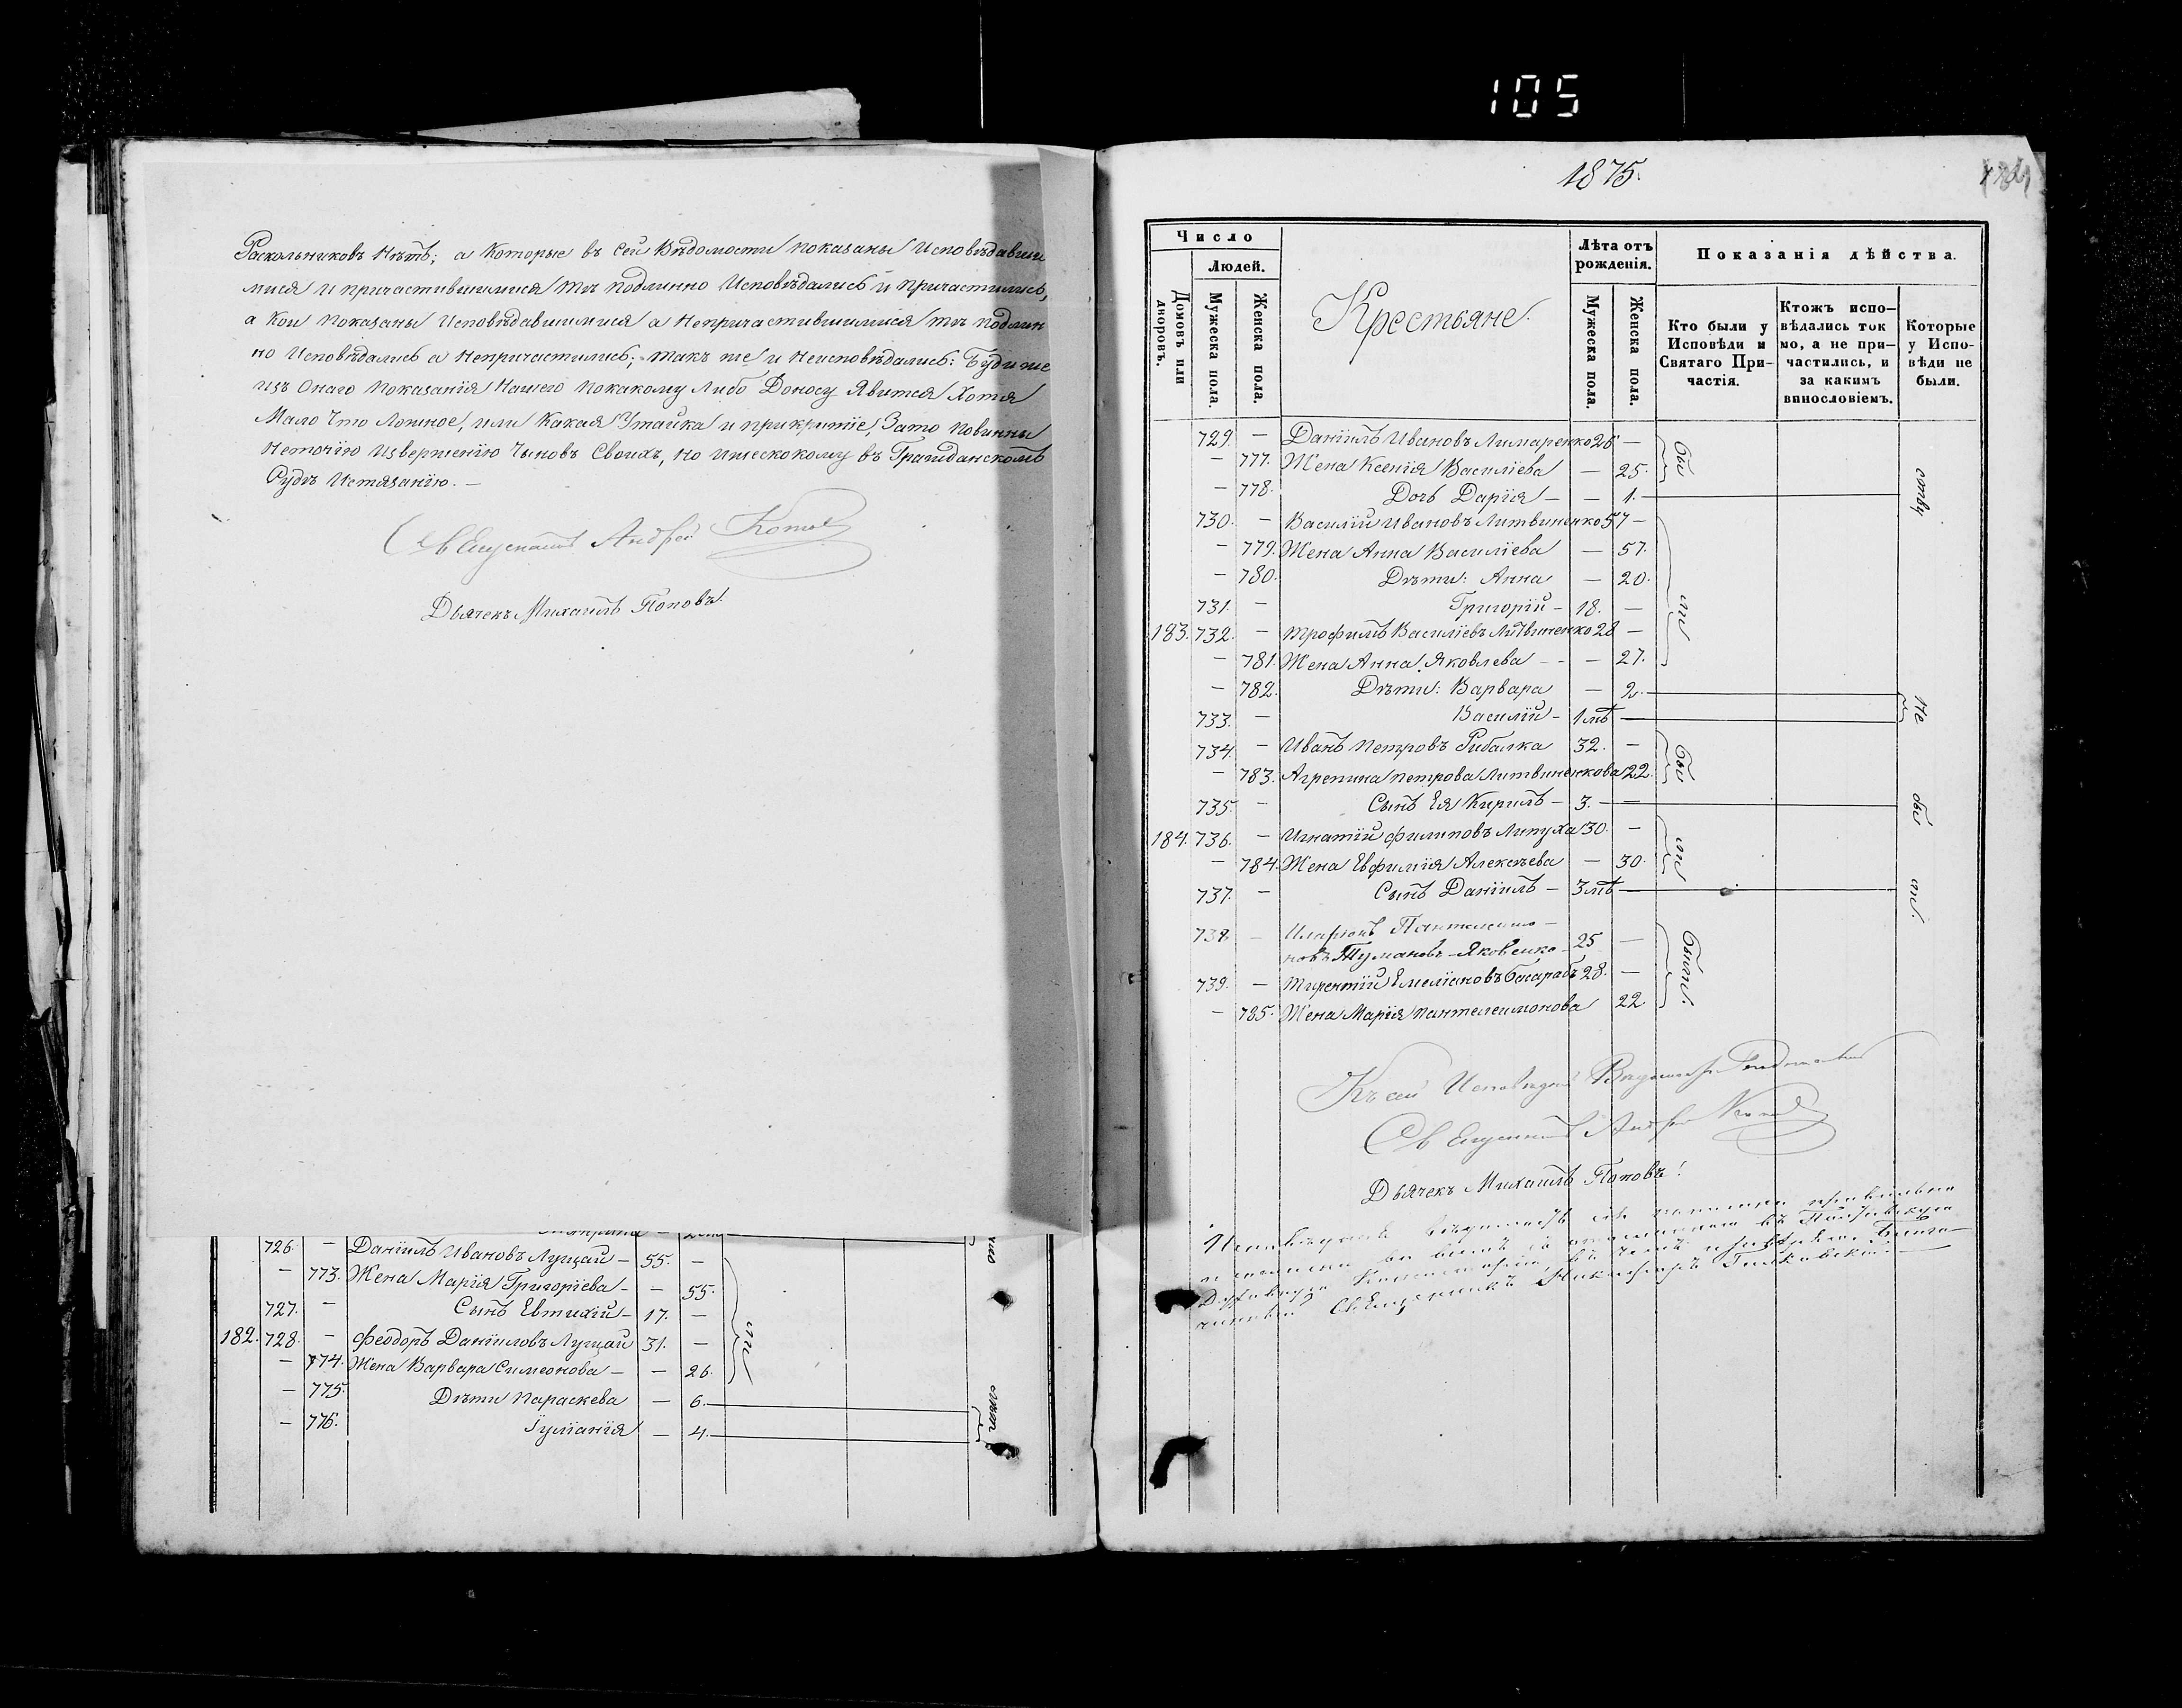 105
Раскольниковъ Нѣтъ; а Которые въ Сей Вѣдомости показаны Исповѣдавши
мися и причастившимися тѣ подлинно Исповѣдались и причастились,
а Кои показаны Исповѣдавшимися а Непричастившимися тѣ подлин
но Исповѣдались а Непричастились; такъ же и Неисповѣдались: Буди же
изъ Онаго показанія Нашего покакому Либо Доносу Явится Хотя
Мало Что Ложное, или Какая Утайка и прикритіе, Зато повинны
Неточію Извержению Чыновъ Своихъ, но и жескокому въ Гражданскомъ
Судѣ Истязанію. —
Священникъ Андрей
Дьячекъ Михаилъ Поповъ.
726. — Даніилъ Ивановъ Лущай — 55. —
— 773. Жена Марія Григоріева — — 55.
727. — Сынъ Евтихій — 17. —
182. 728. — Феодоръ Даніиловъ Лущай 31. —
— 774. Жена Варвара Симеонова — — 26.
— 775. Дѣти Параскева — 6.
— 776. Іуліанія — 4.
1875.
Число
Людей.
Домовъ или дворовъ.
Мужеска пола.
Женска пола.
Крестьяне.
Лѣта отъ рожденія.
Мужеска пола.
Женска пола.
Показанія дѣйства.
Кто были у Исповѣди и Святаго Причастія.
Ктожъ исповѣдались ток мо, а не причастились, и за какимъ винословіемъ.
Которые у Исповѣди не были.
729. — Даніилъ Ивановъ Лимаренко 26 —
— 777. Жена Ксенія Василіева — 25.
— 778. Дочь Дарія — — 1.
730. — Василій Ивановъ Литвиненко 57 —
— 779. Жена Анна Василіева — 57.
— 780. Дѣти: Анна — 20.
731. — Григорій — 18. —
183. 732. — Трофимъ Василіевъ Литвиненко 28 —
— 781. Жена Анна Яковлева — — 27.
— 782. Дѣти: Варвара — 2.
733. — Василій — 1 мѣ
734. — Иванъ Петровъ Рибалка 32. —
— 783. Агрепина Петрова Литвиненкова 22.
735. — Сынъ Ея Кирилъ — 3. —
184. 736. — Игнатій Филиповъ Липуха 30. —
— 784. Жена Евфимія Алексѣева — 30.
737. — Сынъ Даніилъ — 3 мѣ
738 — Иларіонъ Пантелеимо —
новъ Тумановъ - Яковенко — 25 —
739. — Терентій Емеліановъ Басарабъ 28. —
— 785. Жена Марія Пантелеимонова 22.
были.
Къ сей Исповедной
Священникъ Андрей
Дьячекъ Михаилъ Поповъ!